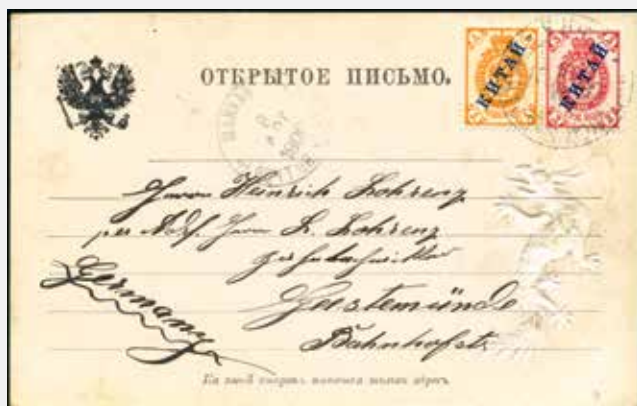 ОТКРЫТОЕ ПИСЬМО.
КИТАЙ КИТАЙ
Herrn Heinrich Lohrenz
per Adr. Herrn L. Lohrenz
Geestemünde
Bahnhofstr
Germany
На этой сторонѣ пишется только адресъ.